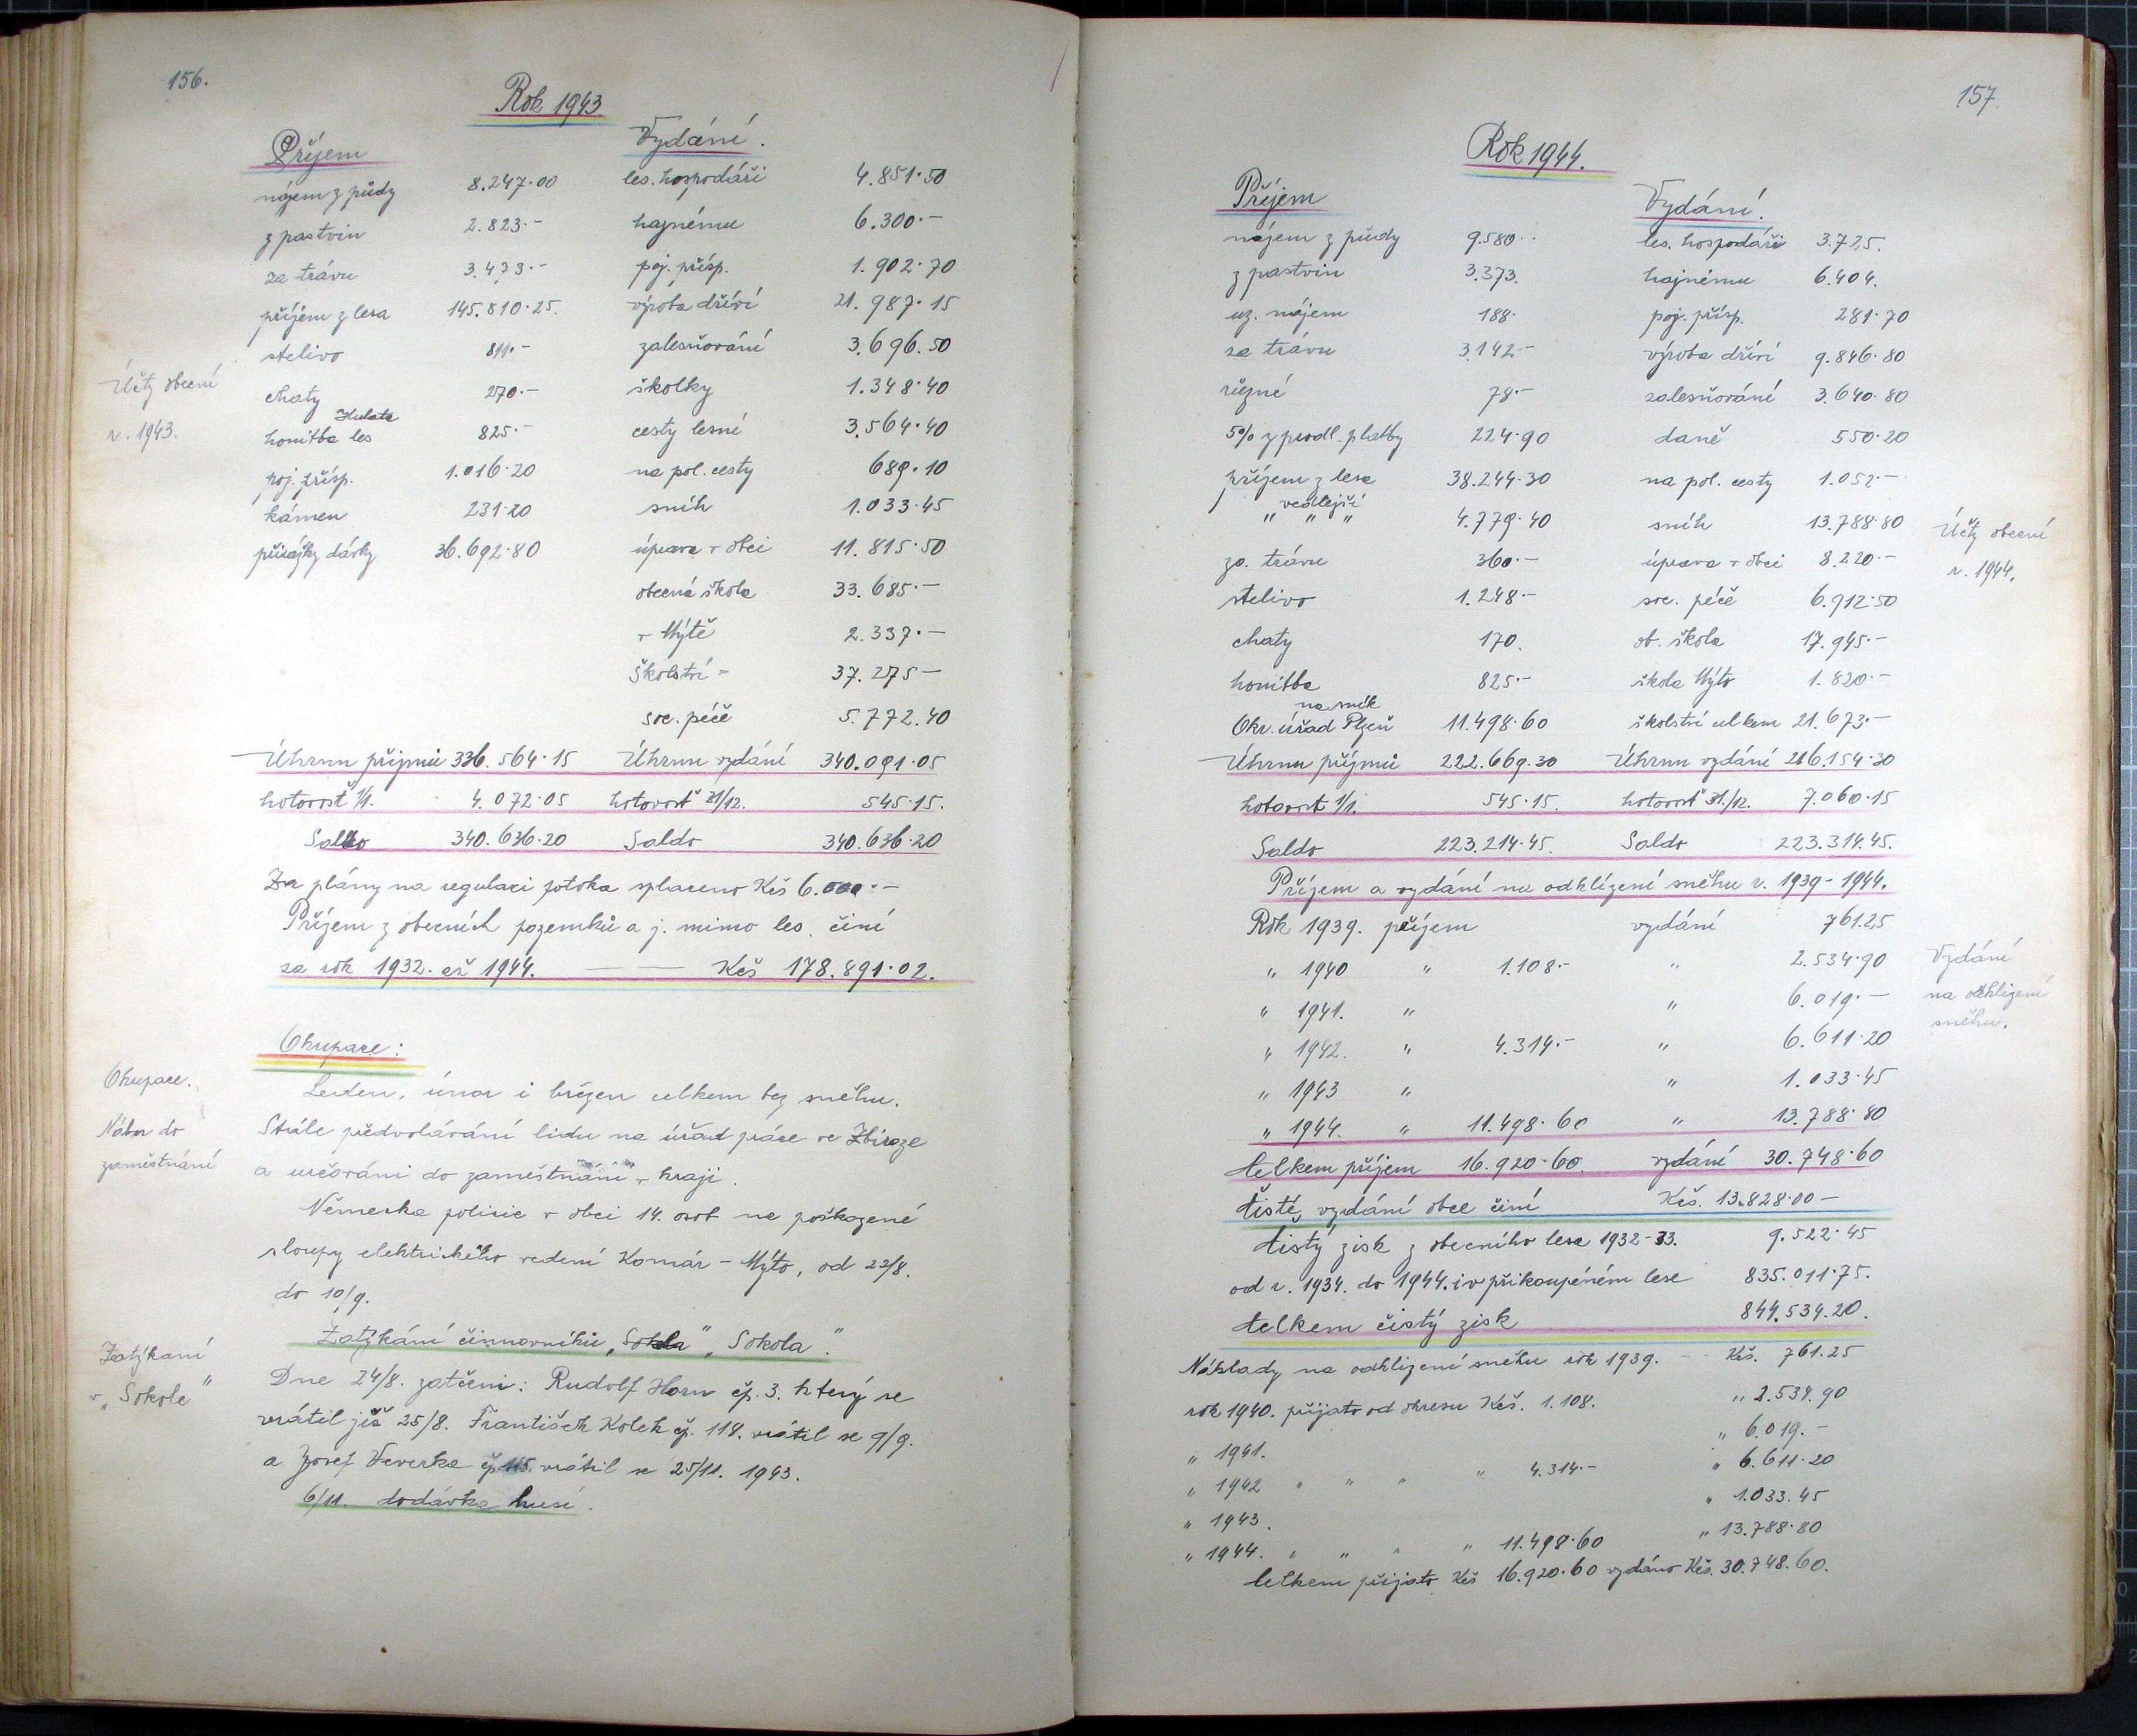 156.
Rok 1943.
Příjem
Vydání.
nájem z půdy 8.247·00 les. hospodáři 4.851·50
z pastvin 2.823·- hajnému 6.300·-
za trávu 3.473·- poj. přísp. 1.902·70
příjem z lesa 145.810·25. výroba dříví 21.987·15
stelivo 811·- zalesňování 3.696.50
Účty obecní
r. 1943.
chaty 270·- školky 1.348·40
Hulata
honitba les 825·- cesty lesní 3.564·40
poj. přísp. 1.016·20 na pol. cesty 689·10
kámen 231·20 sníh 1.033·45
přirážky dávky 36.692·80 úprava v obci 11.815·50
obecná škola 33.685·-
v Mýtě 2.337·-
školství - 37.275-
soc. péče 5.772.40
Úhrnn příjmů 336.564·15 Úhrnn vydání 340.091·05
hotovosť 1/1. 4.072·05 hotovosť 31/12. 545·15.
Saldo 340.636·20 Saldo 340.636·20
Za plány na regulaci potoka splaceno Kčs 6.000·-
Příjem z obecních pozemků a j. mimo les. činí
za rok 1932. až 1944. — — Kčs 178.891·02.
Okupace:
Okupace.
Leden, únor i březen celkem bez sněhu.
Nábor do
zaměstnání
Stále předvolávání lidu na úřad práce ve Zbiroze
a určování do zaměstnání v kraji.
Německa policie v obci 14. osob na poškozené
sloupy elektrického vedení Komár - Mýto, od 22/8.
do 10/9.
Zatýkání činovníků „Sokla" „Sokola".
Zatýkaní
v „Sokole"
Dne 24/8. zatčeni: Rudolf Horn čp. 3. který se
vrátil již 25/8. František Kolek čp. 118. vrátil se 9/9.
a Josef Veverka čp 115. vrátil se 25/11. 1943.
6/11. dodávka husí.
157.
Rok 1944.
Příjem
Vydání.
nájem z půdy 9.580·· les. hospodáři 3.725.
z pastvin 3.373. hajnému 6.404.
uz. nájem 188· poj. přísp. 281·70
za trávu 3.142·- výroba dříví 9.846·80
různé 78·- zalesňování 3.640·80
5% z prodl. platby 224·90 daně 550·20
příjem z lesa 38.244·30 na pol. cesty 1.052·-
" vedlejší " " 4.779·40 sníh 13.788·80
Účty obecní
r. 1944.
za. trávu 360·- úprava v obci 8.220·-
stelivo 1.248·- soc. péče 6.912·50
chaty 170. ob. škola 17.945·-
honitba 825·- škola Mýto 1.820·-
na sník
Okr. úřad Plzeň 11.498·60 školství celkem 21.673·-
Úhrnn příjmů 222.669.30 Úhrnn vydání 216.154·30
hotovost 1/1. 545·15. hotovosť 31./12. 7.060·15
Saldo 223.214·45. Saldo 223.314.45.
Příjem a vydání na odklízení sněhu r. 1939 - 1944.
Rok 1939. příjem vydání 761.25
" 1940 " 1.108·- " 2.534·90
Vydání
na odklizení
sněhu.
" 1941. " " 6.019·-
" 1942. " 4.314·- " 6.611·20
" 1943 " " 1.033·45
" 1944. " 11.498·60 " 13.788·80
Celkem příjem 16.920·60. vydání 30.748·60
Čisté vydání obce činí Kčs. 13.828·00-
Čistý zisk z obecního lesa 1932-33. 9.522·45
od r. 1934. do 1944. i v přikoupéném lese 835.011·75.
Celkem čistý zisk 844.534.20.
Náklady na odklizení sněhu rok 1939. - - Kčs. 761.25
rok 1940. přijato od okresu Kčs. 1.108. " 2.534.90
" 1941. " 6.019.-
" 1942 " " " " 4.314·- " 6.611·20
" 1943. " 1.033.45
" 1944. " " " " 11.498·60 " 13.788·80
Celkem přijato Kčs 16.920·60 vydáno Kčs. 30.748.60.